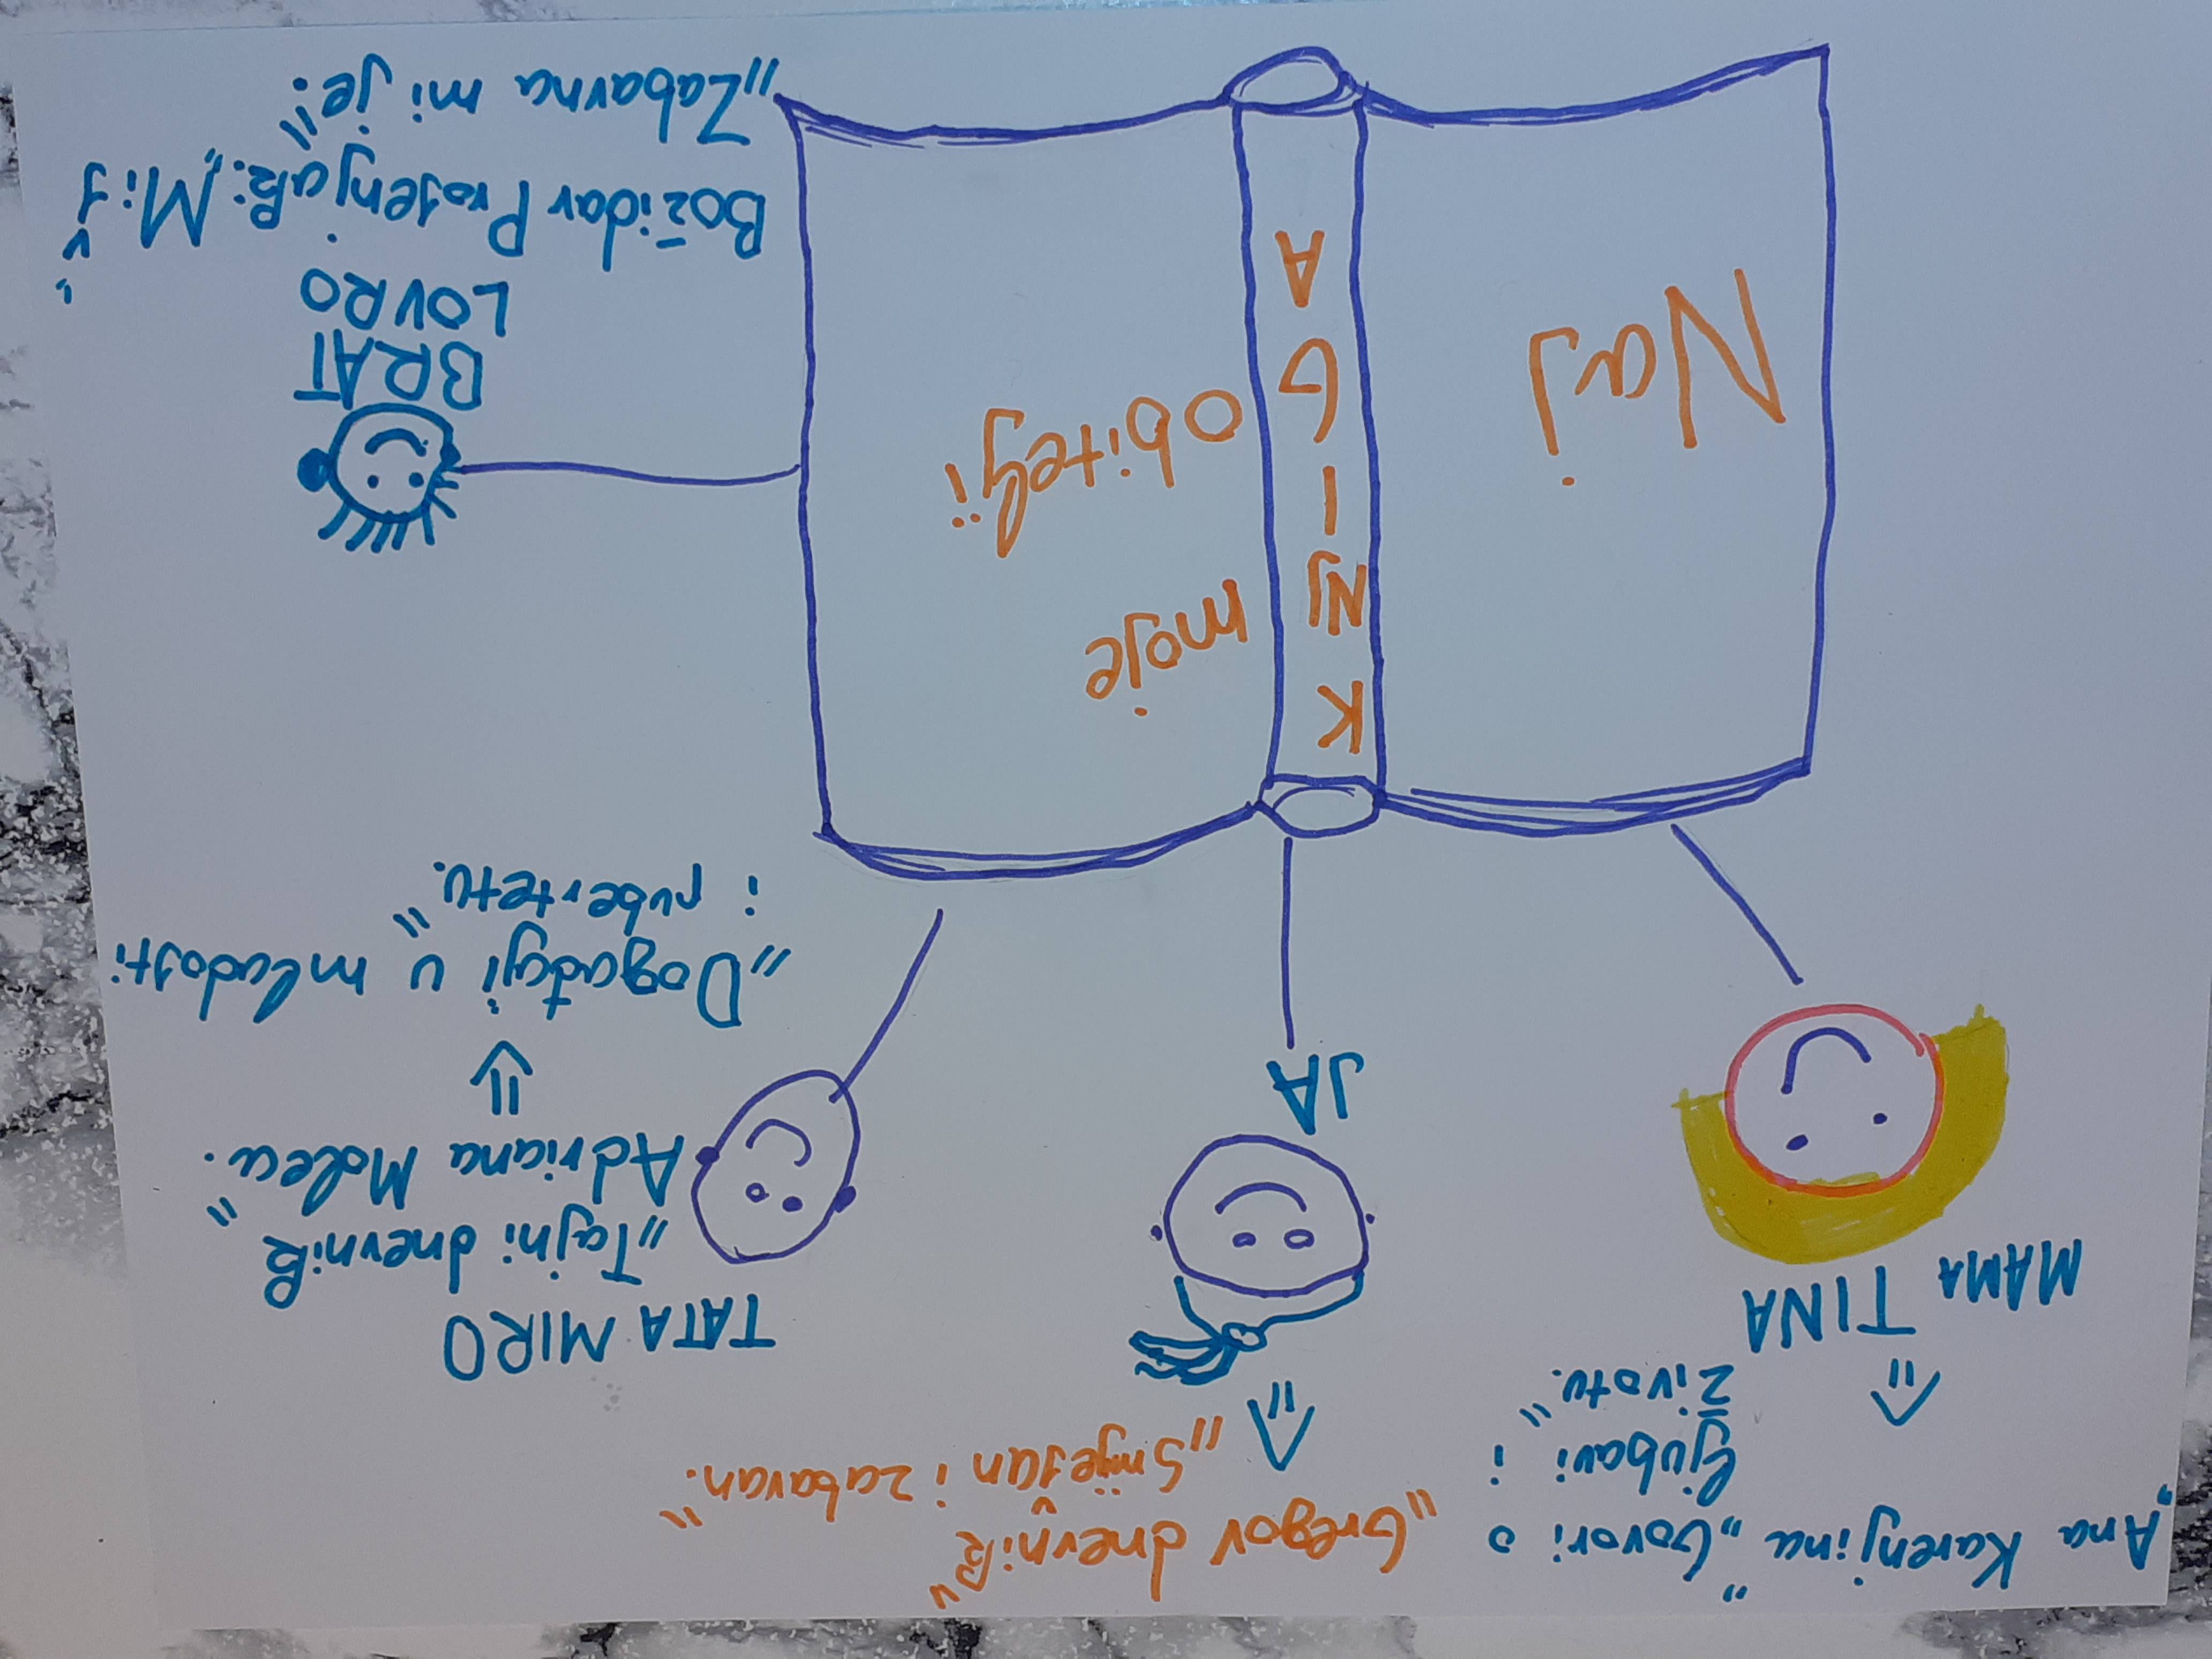 Ana Karenjina" „Govori o
ljubavi i
životu."
MAMA TINA
"Gregov dnevnik"
„Smiješan i zabavan."
JA
TATA MIRO
„Tajni dnevnik"
Adriana Molea.
„Događaji u mladosti
i pubertetu."
Naj
K
NJ
I
G
A
moje
obitelji
BRAT
LOVRO
Božidar Prosenjak: „Miš"
„Zabavna mi je."